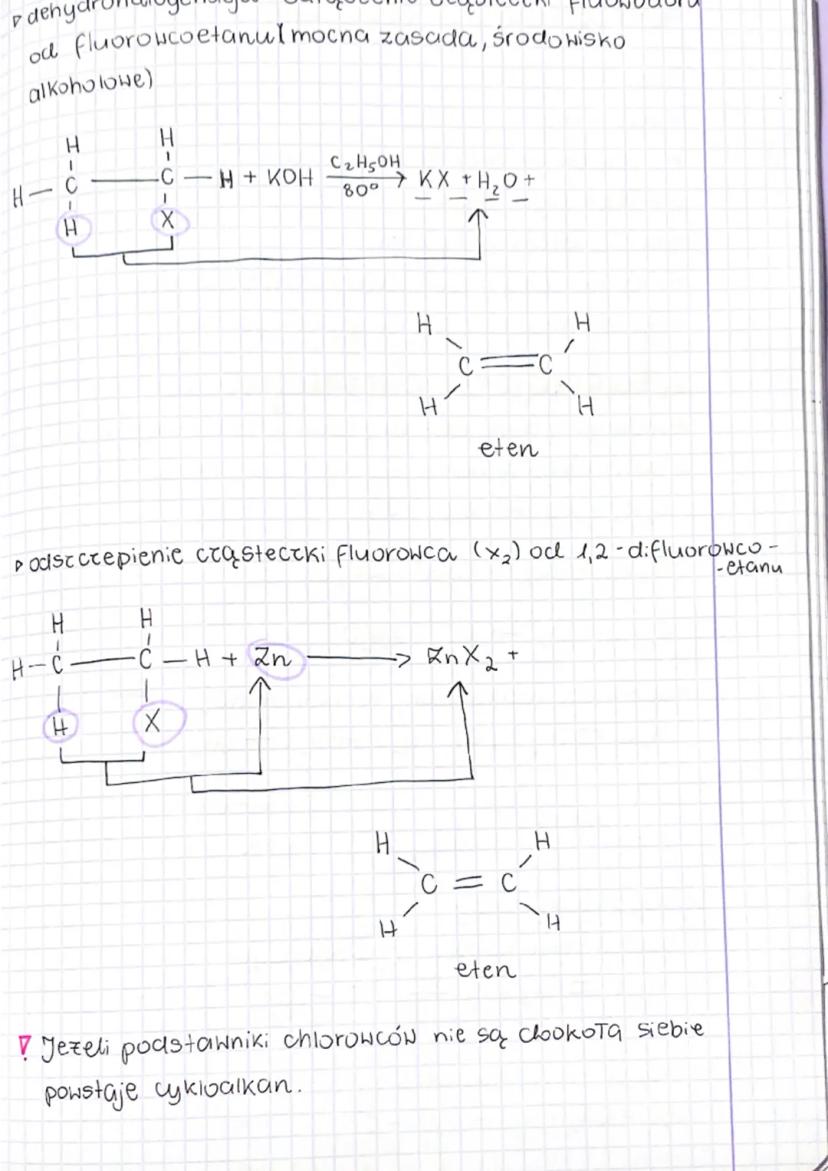 od fluorowcoetanu (mocna zasada, środowisko
alkoholowe)
H H
H – C – C – H + KOH C₂H₅OH 80° → KX + H₂O +
H X
H H
C = C
H H
eten
▹ odszczepienie cząsteczki fluorowca (x₂) od 1,2-difluorowco-
-etanu
H H
H – C – C – H + Zn → ZnX₂ +
H X
H H
C = C
H H
eten
! Jeżeli podstawniki chlorowców nie są dookoła siebie
powstaje cykloalkan.